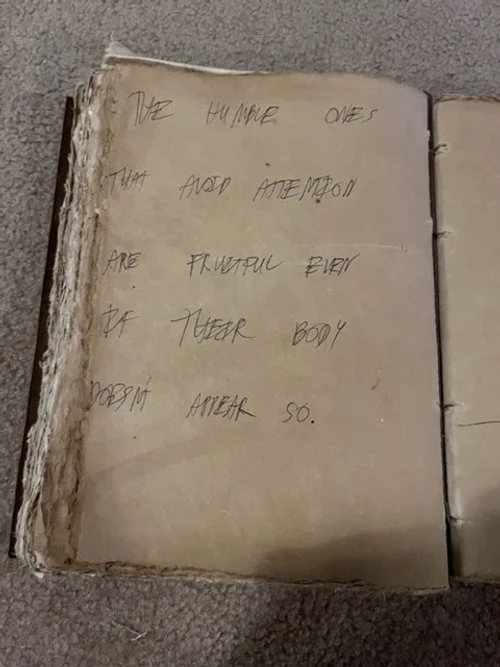 THE HUMBLE ONES
THAT AVOID ATTENTION
ARE FRUITFUL EVEN
IF THEIR BODY
DOESN'T APPEAR SO.